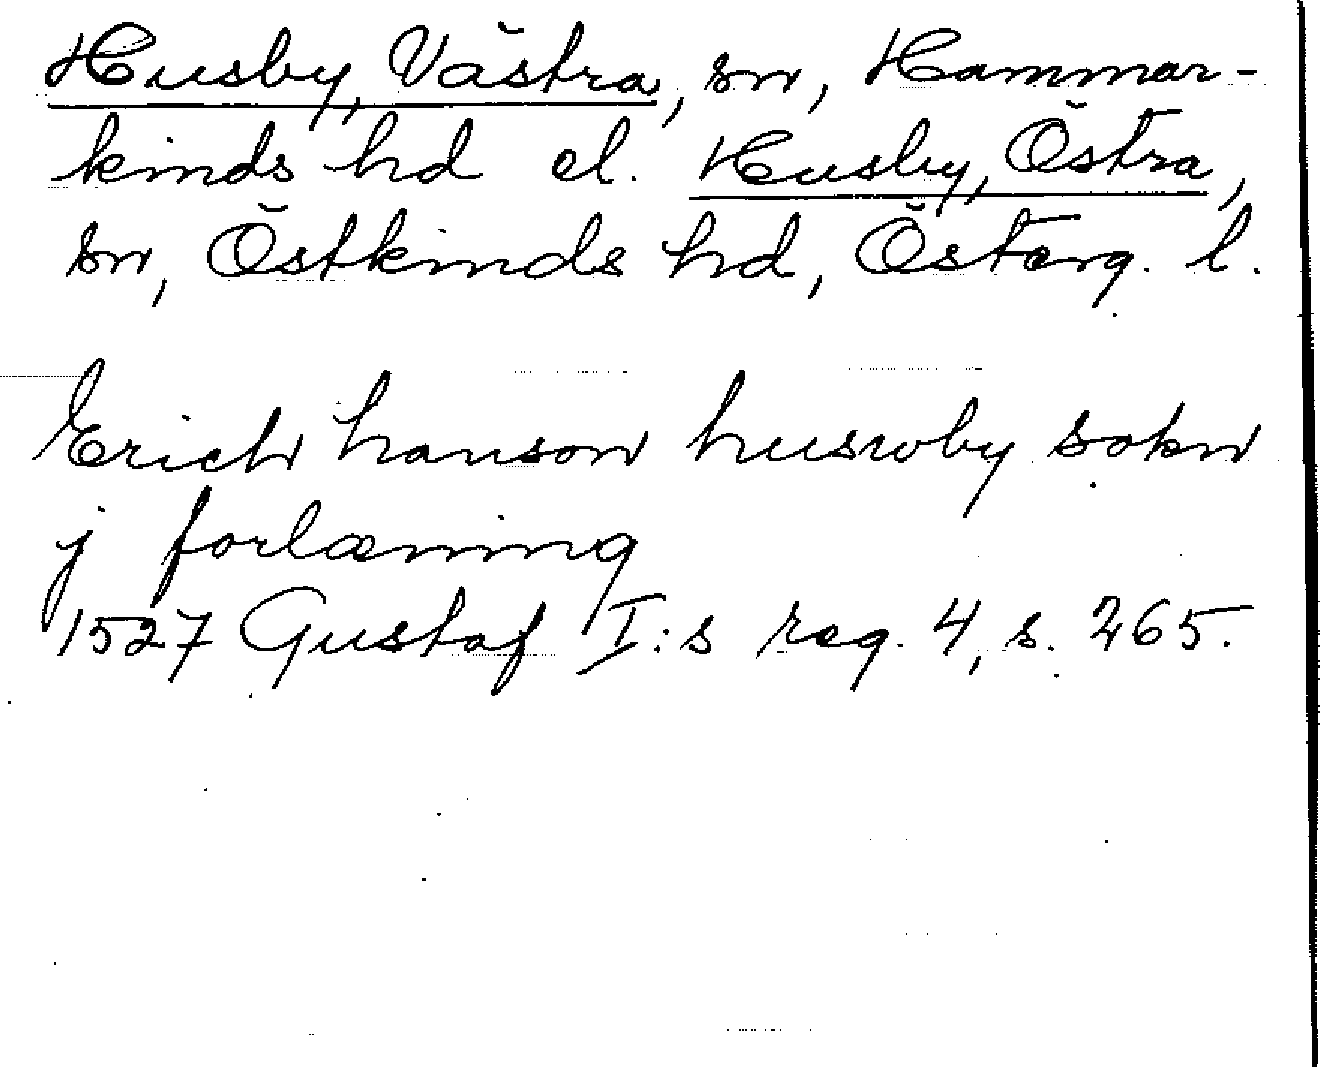 Husby, Västra, sn, Hammar-
kinds hd el. Husby, Östra,
sn, Östkinds hd, Österg. l.
Erich hanson huswby sokn
j forlæning
1527 Gustaf I:s reg. 4, s. 265.